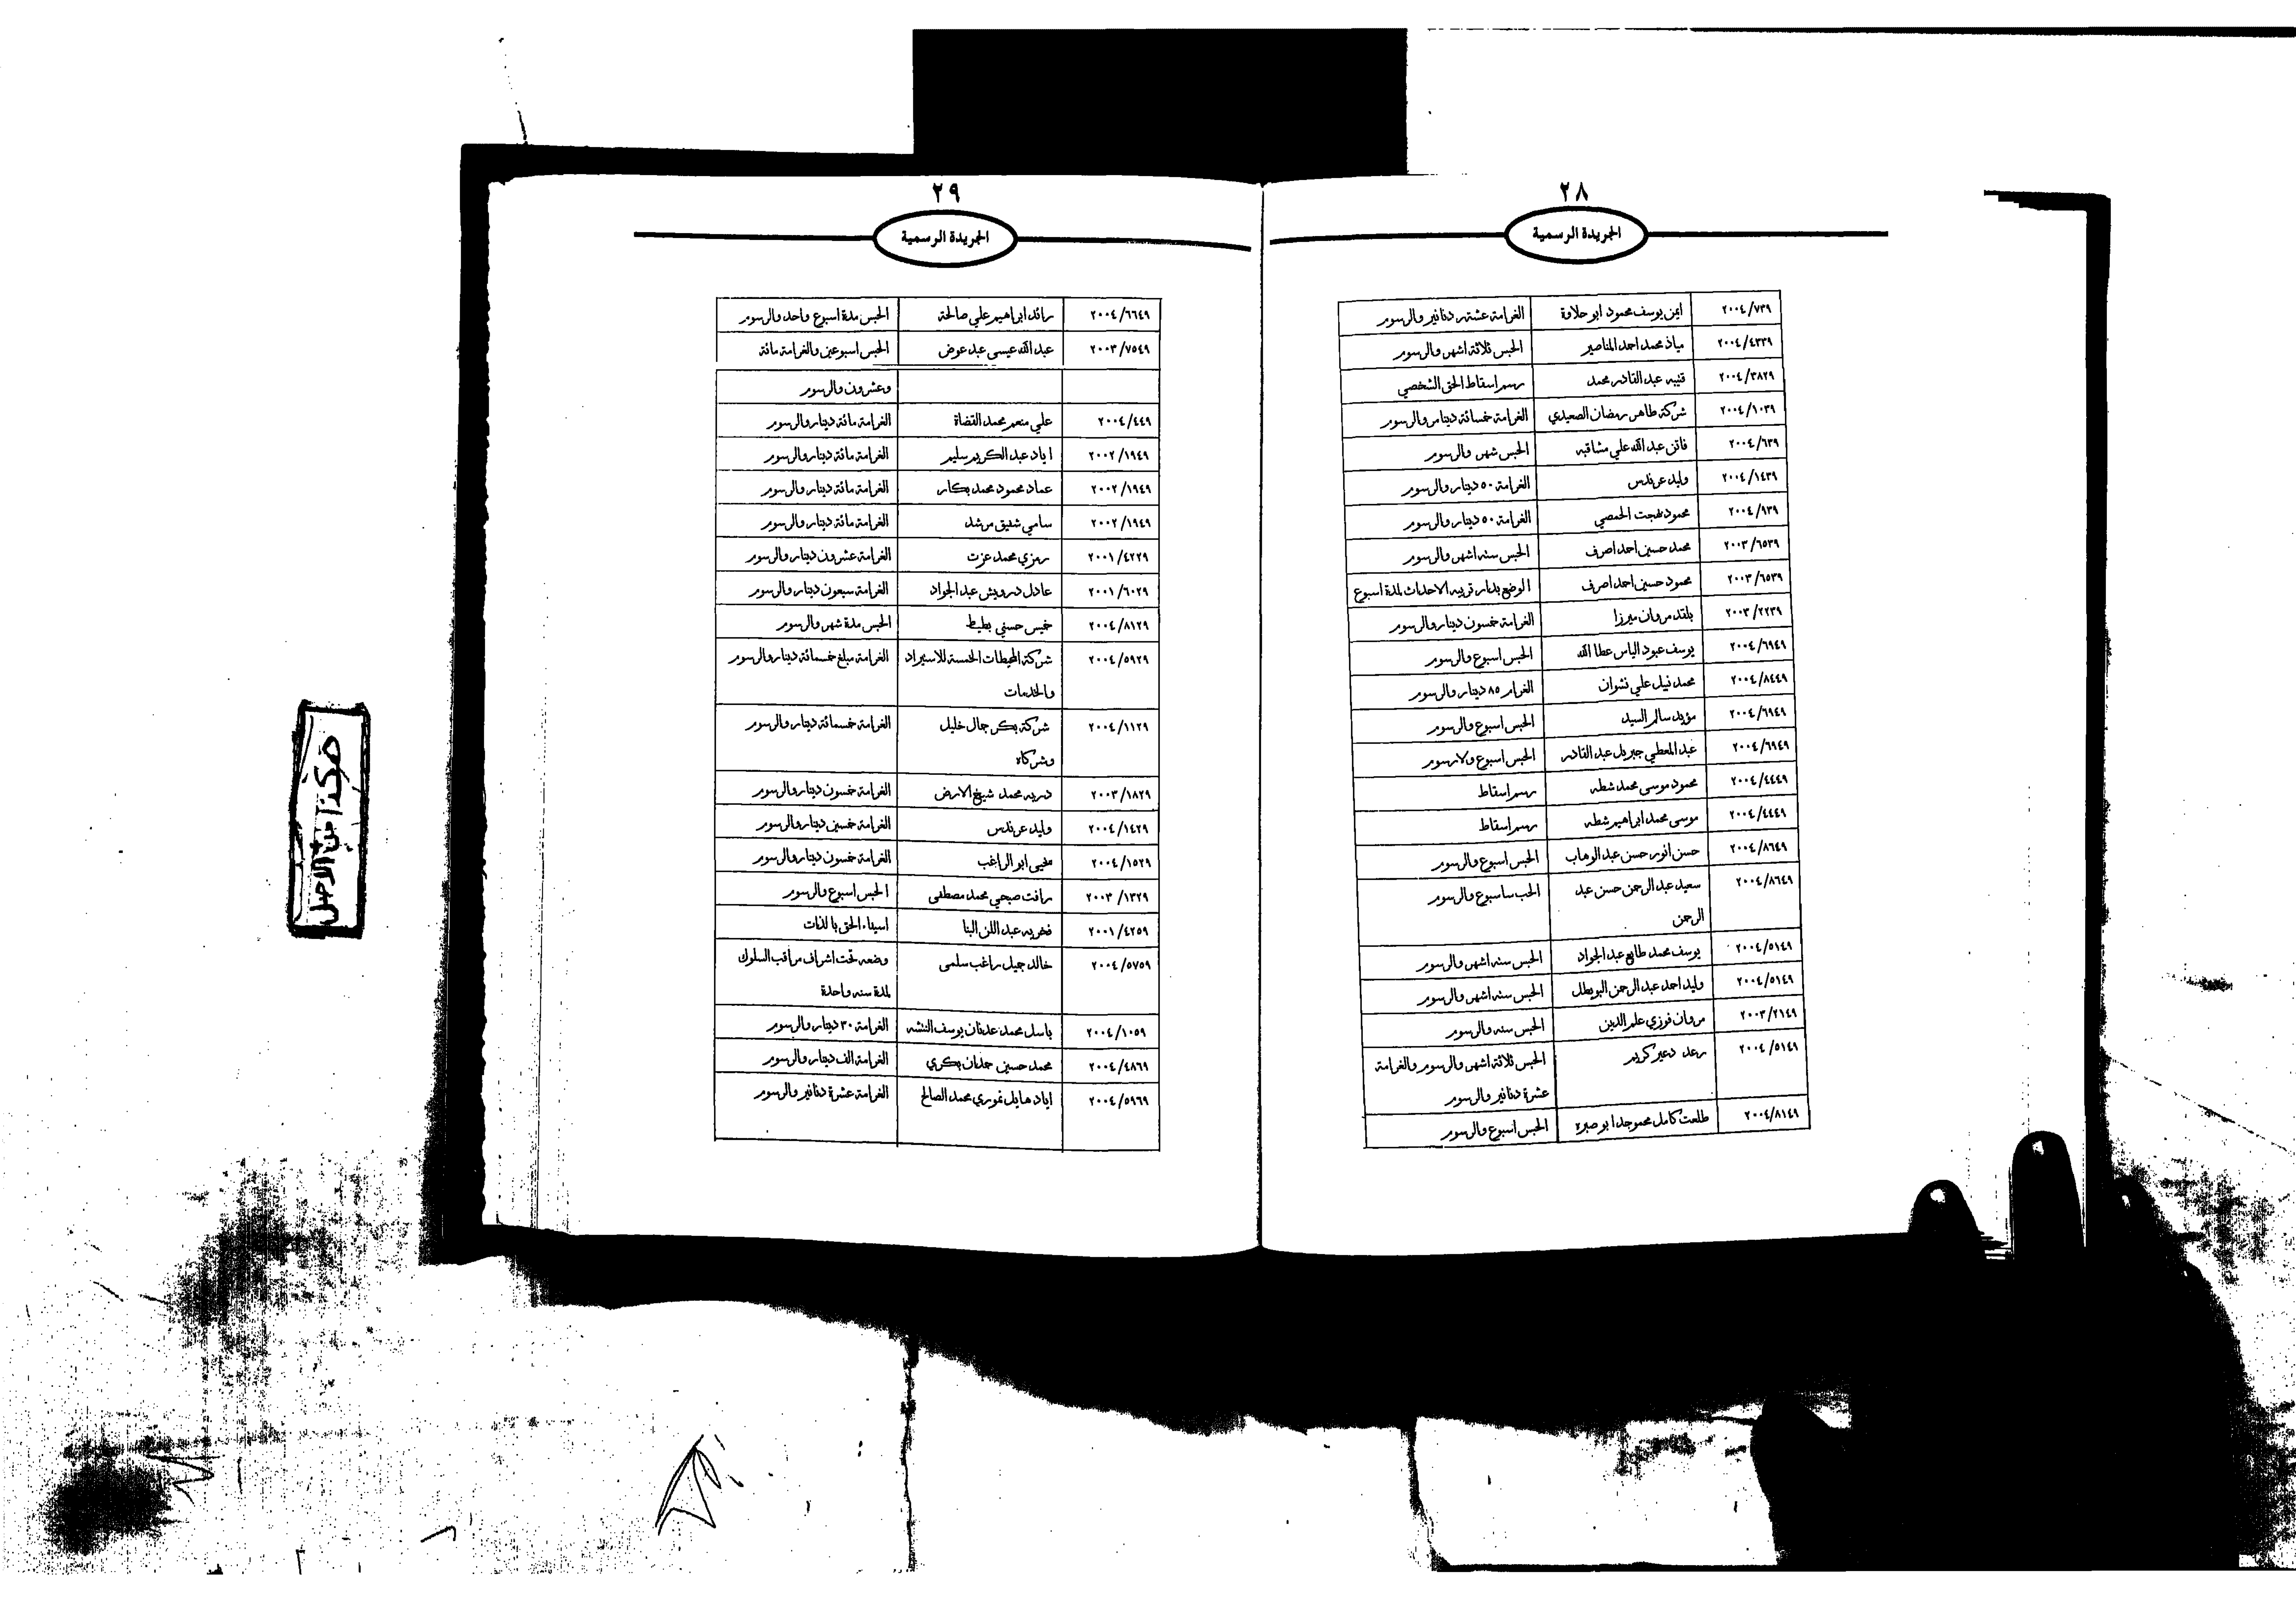 ٢٨
الجريدة الرسمية
٢٠٠٤/٧٣٩ ايمن يوسف محمود ابو حلاوة الغرامة عشتر دنانير والرسوم
٢٠٠٤/٤٣٣٩ مياذ محمد احمد المناصير الحبس ثلاثة اشهر والرسوم
٢٠٠٤/٣٨٢٩ قتيبه عبد القادر محمد رسم اسقاط الحق الشخصي
٢٠٠٤/١٠٣٩ شركة طاهر رمضان الصعيدي الغرامة خمسائة دينار والرسوم
٢٠٠٤/٦٣٩ فاتن عبد الله علي مشاقبه الحبس شهر والرسوم
٢٠٠٤/١٤٣٩ وليد عرندس الغرامة ٥٠ دينار والرسوم
٢٠٠٤/٩٣٩ محمود بهجت الحمصي الغرامة ٥٠ دينار والرسوم
٢٠٠٣/٦٥٣٩ محمد حسين احمد اصرف الحبس سته اشهر والرسوم
٢٠٠٣/٦٥٣٩ محمود حسين احمد اصرف الوضع بدار تربيه الاحداث لمدة اسبوع
٢٠٠٣/٢٢٣٩ بلقد مروان ميرزا الغرامة خمسون دينار والرسوم
٢٠٠٤/٦٩٤٩ يوسف عبود الياس عطا الله الحبس اسبوع والرسوم
٢٠٠٤/٨٤٤٩ محمد نيل علي نشوان الغرام ٨٥ دينار والرسوم
٢٠٠٤/٦٩٤٩ مؤيد سالم السيد الحبس اسبوع والرسوم
٢٠٠٤/٦٩٤٩ عبد المعطي جبريل عبد القادر الحبس اسبوع ولارسوم
٢٠٠٤/٤٤٤٩ محمود موسى محمد شطه رسم اسقاط
٢٠٠٤/٤٤٤٩ موسى محمد ابراهيم شطه رسم اسقاط
٢٠٠٤/٨٦٤٩ حسن انور حسن عبد الوهاب الحبس اسبوع والرسوم
٢٠٠٤/٨٦٤٩ سعيد عبد الرحمن حسن عبد الحب ساسبوع والرسوم
الرحمن
٢٠٠٤/٥١٤٩ يوسف محمد طايع عبد الجواد الحبس سته اشهر والرسوم
٢٠٠٤/٥١٤٩ وليد احمد عبد الرحمن البويطل الحبس سته اشهر والرسوم
٢٠٠٣/٢١٤٩ مروان فوزي علم الدين الحبس سنه والرسوم
٢٠٠٤/٥١٤٩ رعد دعير كريم الحبس ثلاثة اشهر والرسوم والغرامة
عشرة دنانير والرسوم
٢٠٠٤/٨١٤٩ طلعت كامل محموجد ابو صبرة الحبس اسبوع والرسوم
٢٩
الجريدة الرسمية
٢٠٠٤/٦٦٤٩ رائد ابراهيم علي صالحة الحبس مدة اسبوع واحد والرسوم
٢٠٠٣/٧٥٤٩ عبد الله عيسى عبد عوض الحبس اسبوعين والغرامة مائة
وعشرون والرسوم
٢٠٠٤/٤٤٩ علي منعم محمد القضاة الغرامة مائة دينار والرسوم
٢٠٠٢/١٩٤٩ اياد عبد الكريم سليم الغرامة مائة دينار والرسوم
٢٠٠٢/١٩٤٩ عماد محمود محمد بكار الغرامة مائة دينار والرسوم
٢٠٠٢/١٩٤٩ سامي شفيق مرشد الغرامة مائة دينار والرسوم
٢٠٠١/٤٢٢٩ رمزي محمد عزت الغرامة عشرون دينار والرسوم
٢٠٠١/٦٠٢٩ عادل درويش عبد الجواد الغرامة سبعون دينار والرسوم
٢٠٠٤/٨١٢٩ خميس حسني بطيط الحبس مدة شهر والرسوم
٢٠٠٤/٥٩٢٩ شركة المحيطات الخمسة للاستيراد الغرامة مبلغ خمسمائة دينار والرسوم
والخدمات
٢٠٠٤/١١٢٩ شركة بكر جمال خليل الغرامة خمسمائة دينار والرسوم
وشركاه
٢٠٠٣/١٨٢٩ دريه محمد شيخ الارض الغرامة خمسون دينار والرسوم
٢٠٠٤/١٤٢٩ وليد عرندس الغرامة خمسين دينار والرسوم
٢٠٠٤/١٥٢٩ ابو الراغب الغرامة خمسون دينار والرسوم
٢٠٠٣/١٣٢٩ رافت صبحي محمد مصطفى الحبس اسبوع والرسوم
٢٠٠١/٤٢٥٩ فخريه عبد اللن البنا اسيداء الحق بالذات
٢٠٠٤/٥٧٥٩ خالد جميل راغب سلمى وضعه تحت اشراف مراقب السلوك
لمدة سنه واحدة
٢٠٠٤/١٠٥٩ باسل محمد عدنان يوسف النتشه الغرامة ٣٠ دينار والرسوم
٢٠٠٤/٤٨٦٩ محمد حسين حمدان بكري الغرامة الف دينار والرسوم
٢٠٠٤/٥٩٦٩ اياد هايل نموري محمد الصالح الغرامة عشرة دنانير والرسوم
هكذا من الاصل